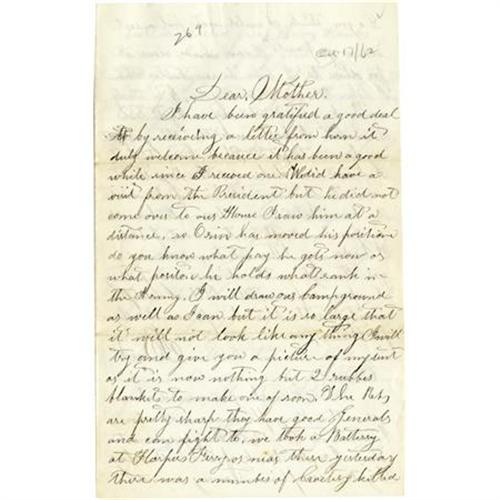 269
Oct 17/62
Dear Mother.
I have been gratified a good deal
by receiving a letter from hom it
duly welcome because it has been a good
while since I receved one We did have a
visit from the President but he did not
come over to our House I saw him at a
distance, so Orin has moved his position
do you know what pay he gets now or
what positon he holds what rank in
the Army. I will draw our Campground
as well as I can but it is so large that
it will not look like any thing I will
try and give you a picture of my tent
as it is now nothing but 2 rubber
blanket to make one of soon. The Rebs
are pretty sharp they have good Generals
and can fight to, we took a Battery
at Harpers Ferry or near there yesterday
there was a number of Cavelry killed